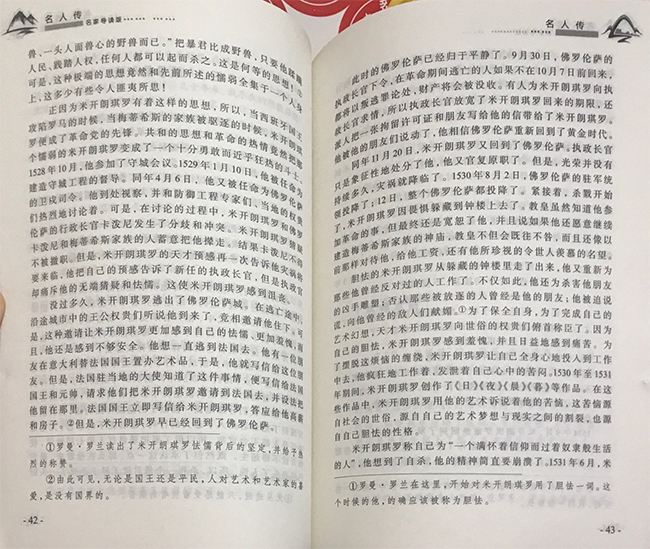 名人传
名家导读版
兽、一头人面兽心的野兽而已。"把暴君比成野兽，只要他蹂躏
人民、践踏人权，任何人都可以起而杀之。这是何等的思想！①
可是，这种极端的思想竟然和先前所述的懦弱全集于一个人身
上，这多少有些令人匪夷所思！
正因为米开朗琪罗有着这样的思想，所以，当西班牙国王
攻陷罗马的时候，当梅蒂希斯的家族被驱逐的时候，米开朗琪
罗便成了革命党的先锋。共和的思想和革命的热情竟然把那
个懦弱的米开朗琪罗变成了一个十分勇敢而近乎狂热的斗士。
1528年10月，他参加了守城会议。1529年1月10日，他被任命为
建造守城工程的督导。同年4月6日，他又被任命为佛罗伦萨
的卫戍司令。他到处视察，并和防御工程专家们、当地的权贵
们热烈地讨论着。可是，在讨论的过程中，米开朗琪罗和佛罗
伦萨的行政长官卡泼尼发生了分歧和冲突。米开朗琪罗猜疑
卡泼尼和梅蒂希斯家族的人蓄意把他操走。结果卡泼尼不得
不被撤职。但是，米开朗琪罗的天才预感再一次告诉他灾祸将
要来临，他把自己的预感告诉了新任的执政长官，但是执政官
却痛斥他的无端猜疑和怯懦。这使米开朗琪罗感到沮丧。
没过多久，米开朗琪罗逃出了佛罗伦萨城。在逃亡途中，
沿途城市中的王公权贵们听说他到来了，竞相邀请他住下。可
是，这种邀请让米开朗琪罗更加感到自己的怯懦，更加羞愧，而
且，他还是感到不够安全。他想一直逃到法国去。他有一位朋
友在意大利替法国国王置办艺术品，于是，他就写信给这位朋
友。但是，法国驻当地的大使知道了这件事情，便写信给法国
国王和元帅，请求他们把米开朗琪罗邀请到法国去，并设法把
他留在那里。法国国王立即写信给米开朗琪罗，答应给他高薪
和房子。②但是，米开朗琪罗早已经回到了佛罗伦萨。
①罗曼·罗兰读出了米开朗琪罗怯懦背后的坚定，并给予热
烈的称赞。
②由此可见，无论是国王还是平民，人对艺术和艺术家的喜
爱，是没有国界的。
·42·
名人传
此时的佛罗伦萨已经归于平静了。9月30日，佛罗伦萨的
执政长官下令，在革命期间逃亡的人如果不在10月7日前回来，
都将以叛逃罪论处，财产将会被没收。有人为米开朗琪罗向执
政长官求情，所以执政长官放宽了米开朗琪罗回来的期限，还
派人把一张拘留许可证和朋友写给他的信带给了米开朗琪罗。
他被他的朋友们说动了，他相信佛罗伦萨重新回到了黄金时代。
同年11月20日，米开朗琪罗又回到了佛罗伦萨。执政长官
只是象征性地处分了他，他又官复原职了。但是，光荣并没有
持续多久，灾祸就降临了。1530年8月2日，佛罗伦萨的驻军统
领投降了；12日，整个佛罗伦萨都投降了。紧接着，杀戮开始
了，米开朗琪罗因畏惧躲藏到钟楼上去了。教皇虽然知道他参
加革命的事，但最终还是宽恕了他，并且说如果他还愿意继续
建造梅蒂希斯家族的神庙，教皇不但会既往不咎，而且还像以
前那样对待他，给他工资，还有他所珍视的令世人羡慕的名望。
胆怯的米开朗琪罗从躲藏的钟楼里走了出来，他又重新为
那些他曾经反对过的人工作了。不仅如此，他还为杀害他朋友
的凶手雕塑；否认那些被放逐的人曾经是他的朋友；他被迫说
谎，向他曾经的敌人们献媚。①为了保全自身，为了完成自己的
艺术幻想，天才米开朗琪罗向世俗的权贵们俯首称臣了。因为
自己的胆怯，米开朗琪罗感到羞愧，并且日益地感到痛苦。为
了摆脱这烦恼的缠绕，米开朗琪罗让自己全身心地投入到工作
中去，他疯狂地工作着，发泄着自己心中的苦闷。1530年至1531
年期间，米开朗琪罗创作了《日》《夜》《晨》《暮》等作品。在这
些作品中，米开朗琪罗用他的艺术诉说着他的苦恼，这苦恼源
自社会的世俗，源自自己的艺术梦想与现实之间的割裂，也源
自自己胆怯的性格。
米开朗琪罗称自己为"一个满怀着信仰而过着奴隶般生活
的人"，他想到了自杀，他的精神简直要崩溃了。1531年6月，米
①罗曼·罗兰在这里，开始对米开朗琪罗用了胆怯一词。这
个时候的他，的确应该被称为胆怯。
·43·